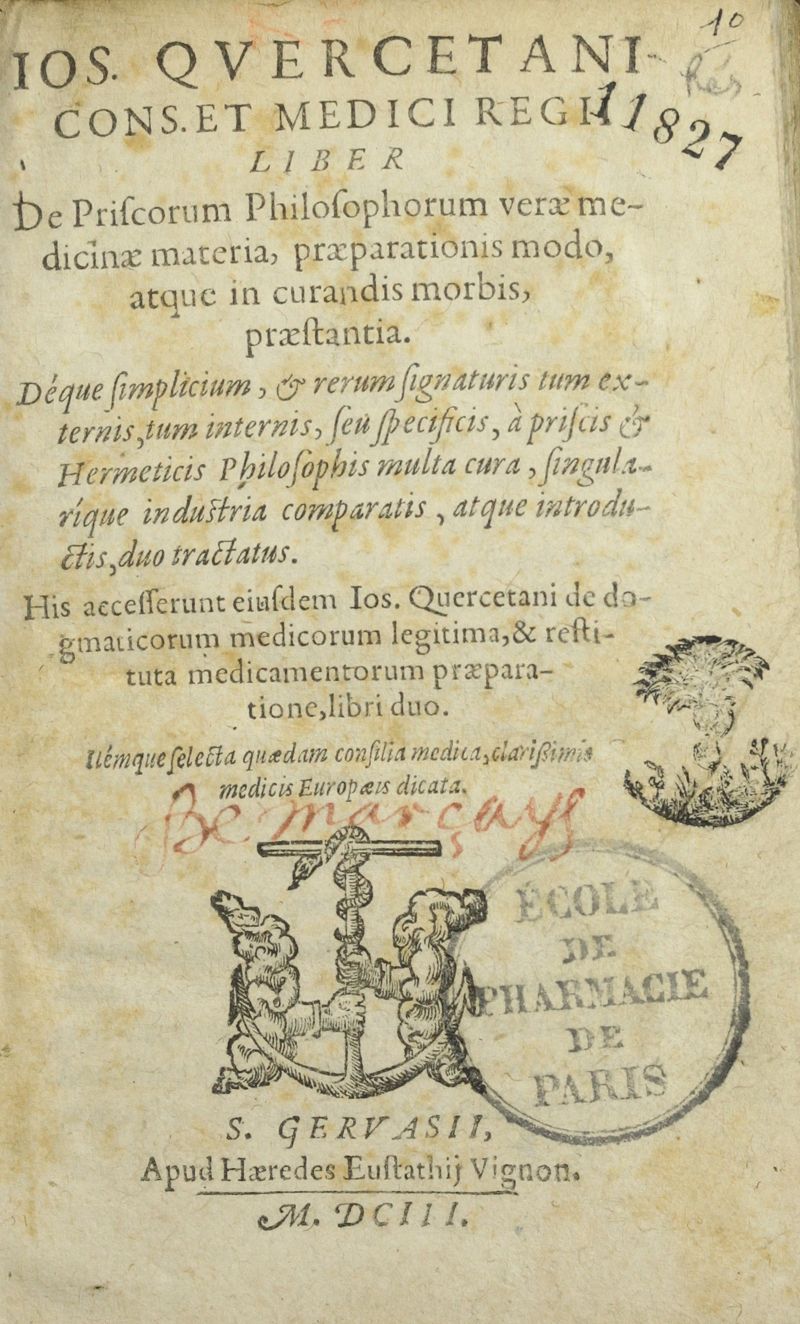 10
IOS. QVERCETANI
CONS. ET MEDICI REGII
11827
LIBER
De Priſcorum Philoſophorum veræ me-
dicinæ materia, præparationis modo,
atque in curandis morbis,
præſtantia.
Déque ſimplicium, & rerum ſignaturis tum ex-
ternis, tum internis, ſeu ſpecificis, à priſcis &
Hermeticis Philoſophis multa cura, ſingula-
ríque induſtria comparatis, atque introdu-
ctis, duo tractatus.
His acceſſerunt eiuſdem Ios. Quercetani de do-
gmaticorum medicorum legitima, & reſti-
tuta medicamentorum præpara-
tione, libri duo.
Itémque ſelecta quædam conſilia medica, clariſsimis
medicis Europæis dicata.
De marçays
ÉCOLE
DE
PHARMACIE
DE
PARIS
S. GERVASII,
Apud Hæredes Euſtathij Vignon.
M. DCIII.